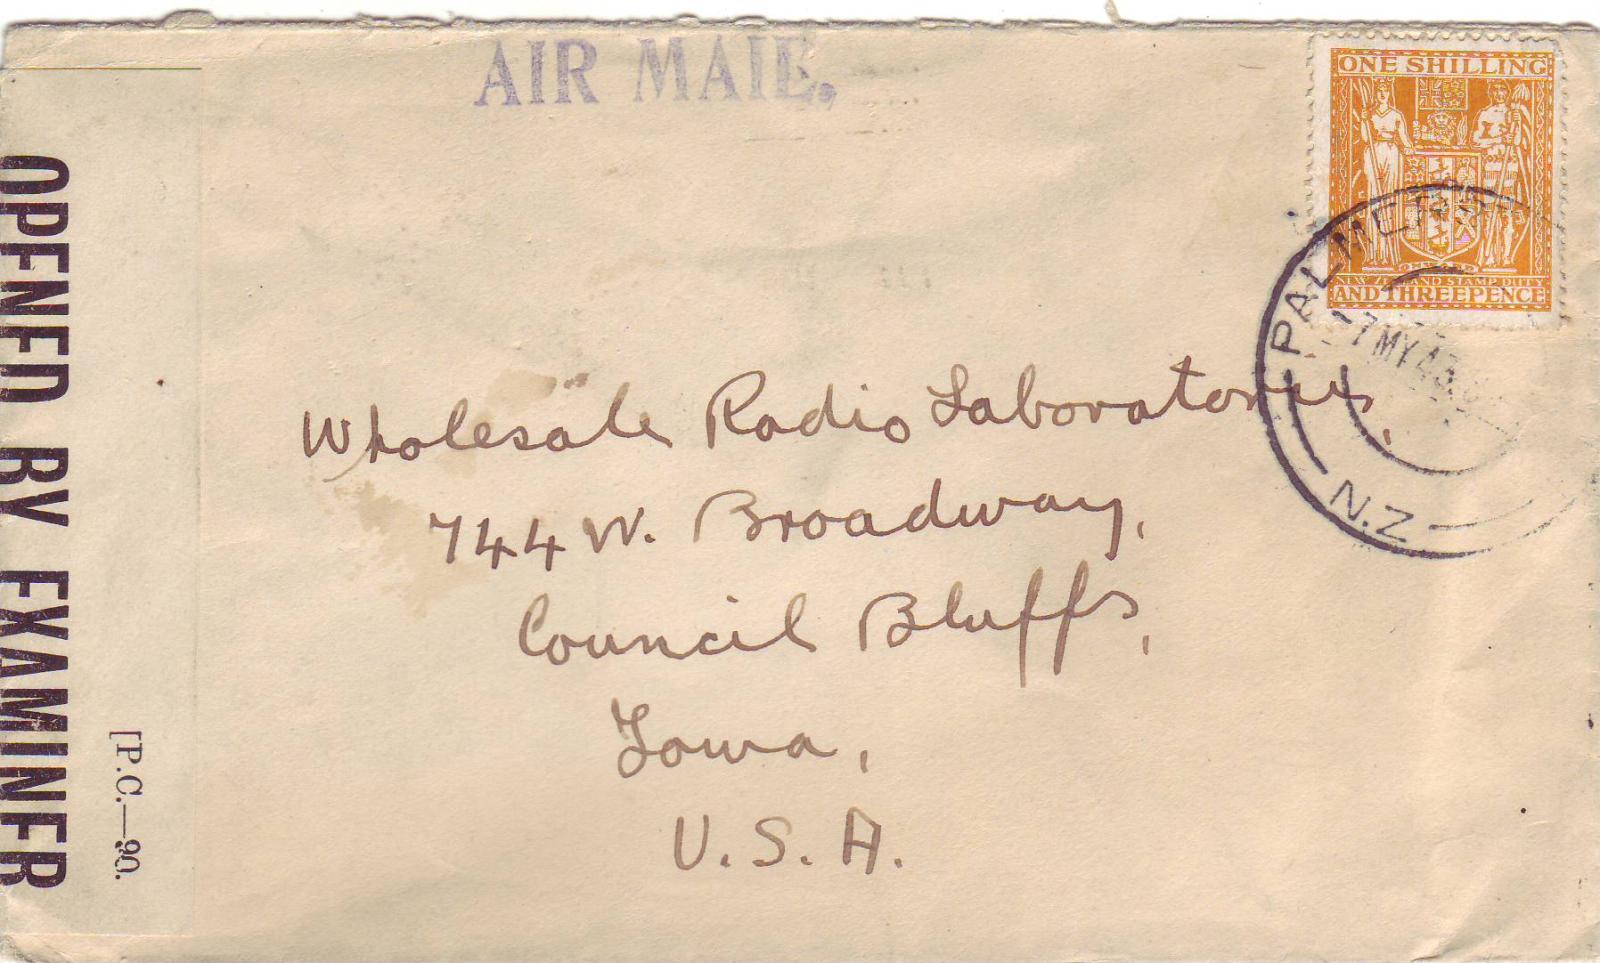 AIR MAIL.
ONE SHILLING
NEW ZEALAND STAMP DUTY
AND THREEPENCE
PALMERS
7 MY 43
N.Z
Wholesale Radio Laboratories,
744 W. Broadway,
Council Bluffs,
Iowa,
U.S.A.
OPENED BY EXAMINER
[P.C.—90.